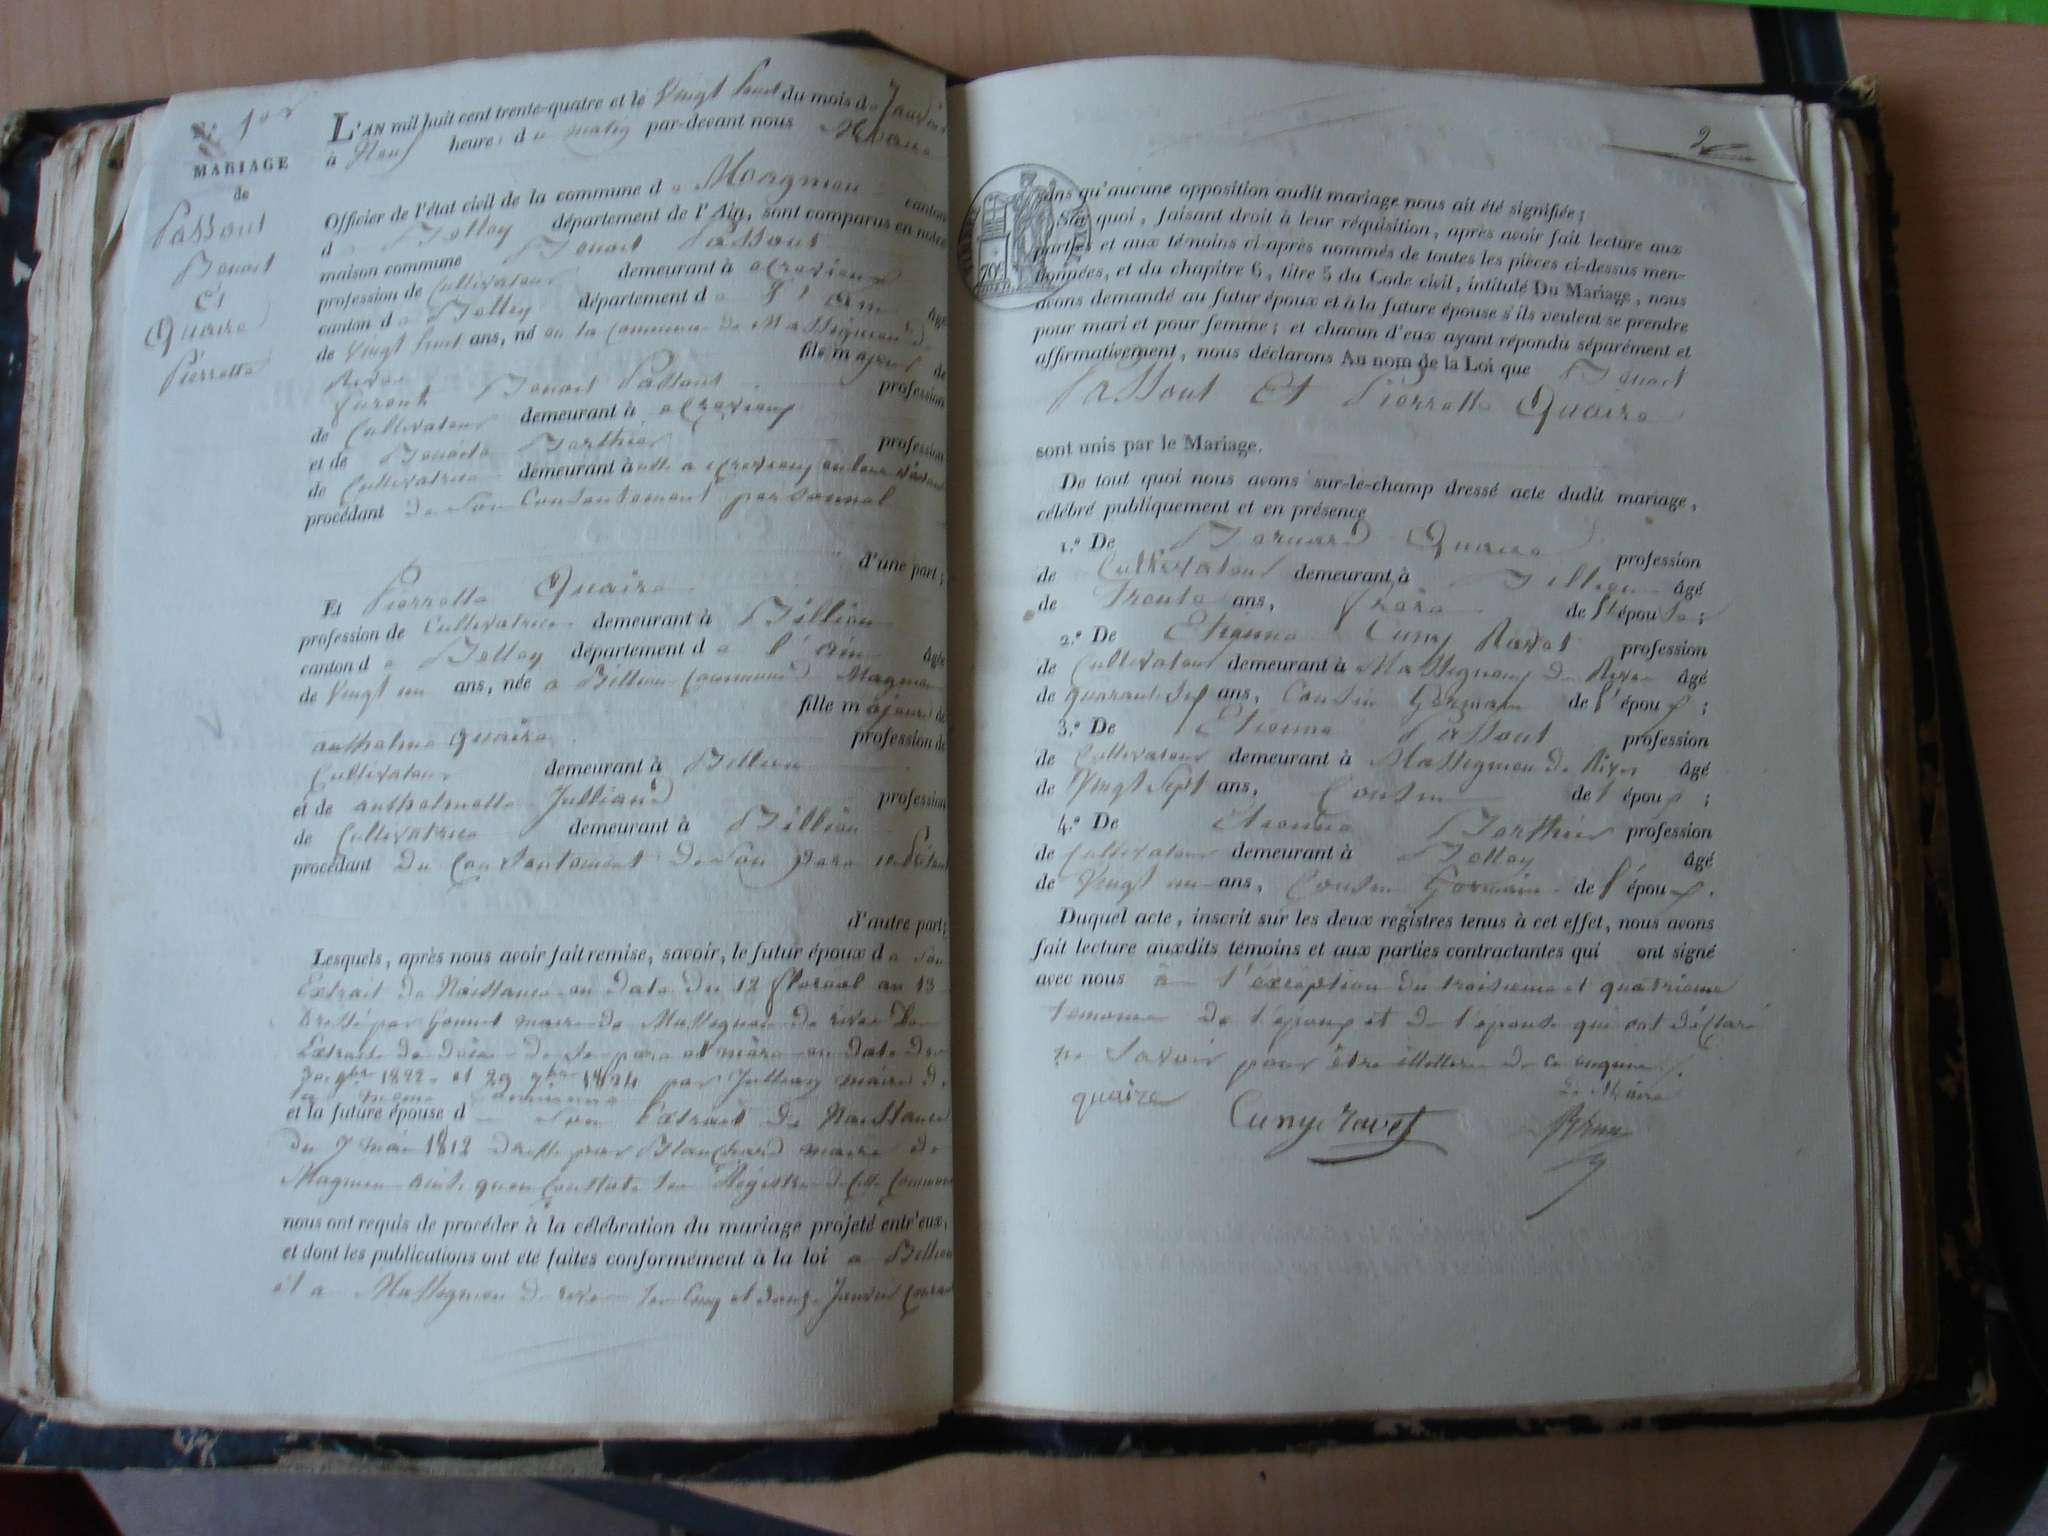 N.º 1er
MARIAGE
de
Passout
Benoit
Et
Quaire
Pierrette
L'AN mil huit cent trente-quatre et le Vingt huit du mois de Janvier
à Neuf heures du matin par-devant nous Maire
Officier de l'état civil de la commune de Magnieu canton
de Belley département de l'Ain, sont comparus en notre
maison commune Benoit Passout
profession de Cultivateur demeurant à
canton de Belley département de l'Ain âgé
de Vingt huit ans, né en la Commune de Massignieu de
Rives fils majeur de
Benoit Passout profession
de Cultivateur demeurant à
et de Benoite Berthier profession
de Cultivatrice demeurant à
procédant de Son Consentement personnel
d'une part;
Et Pierrette Quaire
profession de Cultivatrice demeurant à Billieu
canton de Belley département de l'Ain âgée
de Vingt un ans, née à Billieu Commune de Magnieu
fille majeure de
anthelme Quaire profession de
Cultivateur demeurant à Billieu
et de anthelmette Julliand profession
de Cultivatrice demeurant à Billieu
procédant du Consentement de Son père
d'autre part;
Lesquels, après nous avoir fait remise, savoir, le futur époux de Son
Extrait de Naissance en date du 12 floréal an 13
Dressé par maire de Massignieu de rives
Extraits de décès de ses père et mère en date des
9bre 1822 et 29 7bre 1824 par maire de
la même Commune
et la future épouse d Son Extrait de Naissance
du 7 mai 1812 dressé par Blanchard maire de
Magnieu ainsi qu'en Constate les Régistres de cette Commune
nous ont requis de procéder à la célébration du mariage projeté entr'eux,
et dont les publications ont été faites conformément à la loi a Billieu
et a Massignieu de rives les Cinq et douze Janvier Courant
2
sans qu'aucune opposition audit mariage nous ait été signifiée;
Sur quoi, faisant droit à leur réquisition, après avoir fait lecture aux
parties et aux témoins ci-après nommés de toutes les pièces ci-dessus men-
tionnées, et du chapitre 6, titre 5 du Code civil, intitulé Du Mariage, nous
avons demandé au futur époux et à la future épouse s'ils veulent se prendre
pour mari et pour femme; et chacun d'eux ayant répondu séparément et
affirmativement, nous déclarons Au nom de la Loi que Benoit
Passout Et Pierrette Quaire
sont unis par le Mariage.
De tout quoi nous avons sur-le-champ dressé acte dudit mariage,
célébré publiquement et en présence
1.º De Bernard Quaire profession
de Cultivateur demeurant à Billieu âgé
de Trente ans, frère de l'épouse;
2.º De Etienne Cuny Ravet profession
de Cultivateur demeurant à Massignieu de Rives âgé
de quarante Sept ans, Cousin Germain de l'époux;
3.º De Etienne Passout profession
de Cultivateur demeurant à Massignieu de Rives âgé
de Vingt Sept ans, Cousin de l'époux;
4.º De Etienne Berthier profession
de Cultivateur demeurant à Belley âgé
de Vingt un ans, Cousin Germain de l'époux.
Duquel acte, inscrit sur les deux registres tenus à cet effet, nous avons
fait lecture auxdits témoins et aux parties contractantes qui ont signé
avec nous à l'exception du troisieme et quatrieme
temoins de l'époux et de l'épouse qui ont déclaré
ne Savoir pour être illettrés de ce enquis.
Le Maire
quaire Cuny ravet
70c